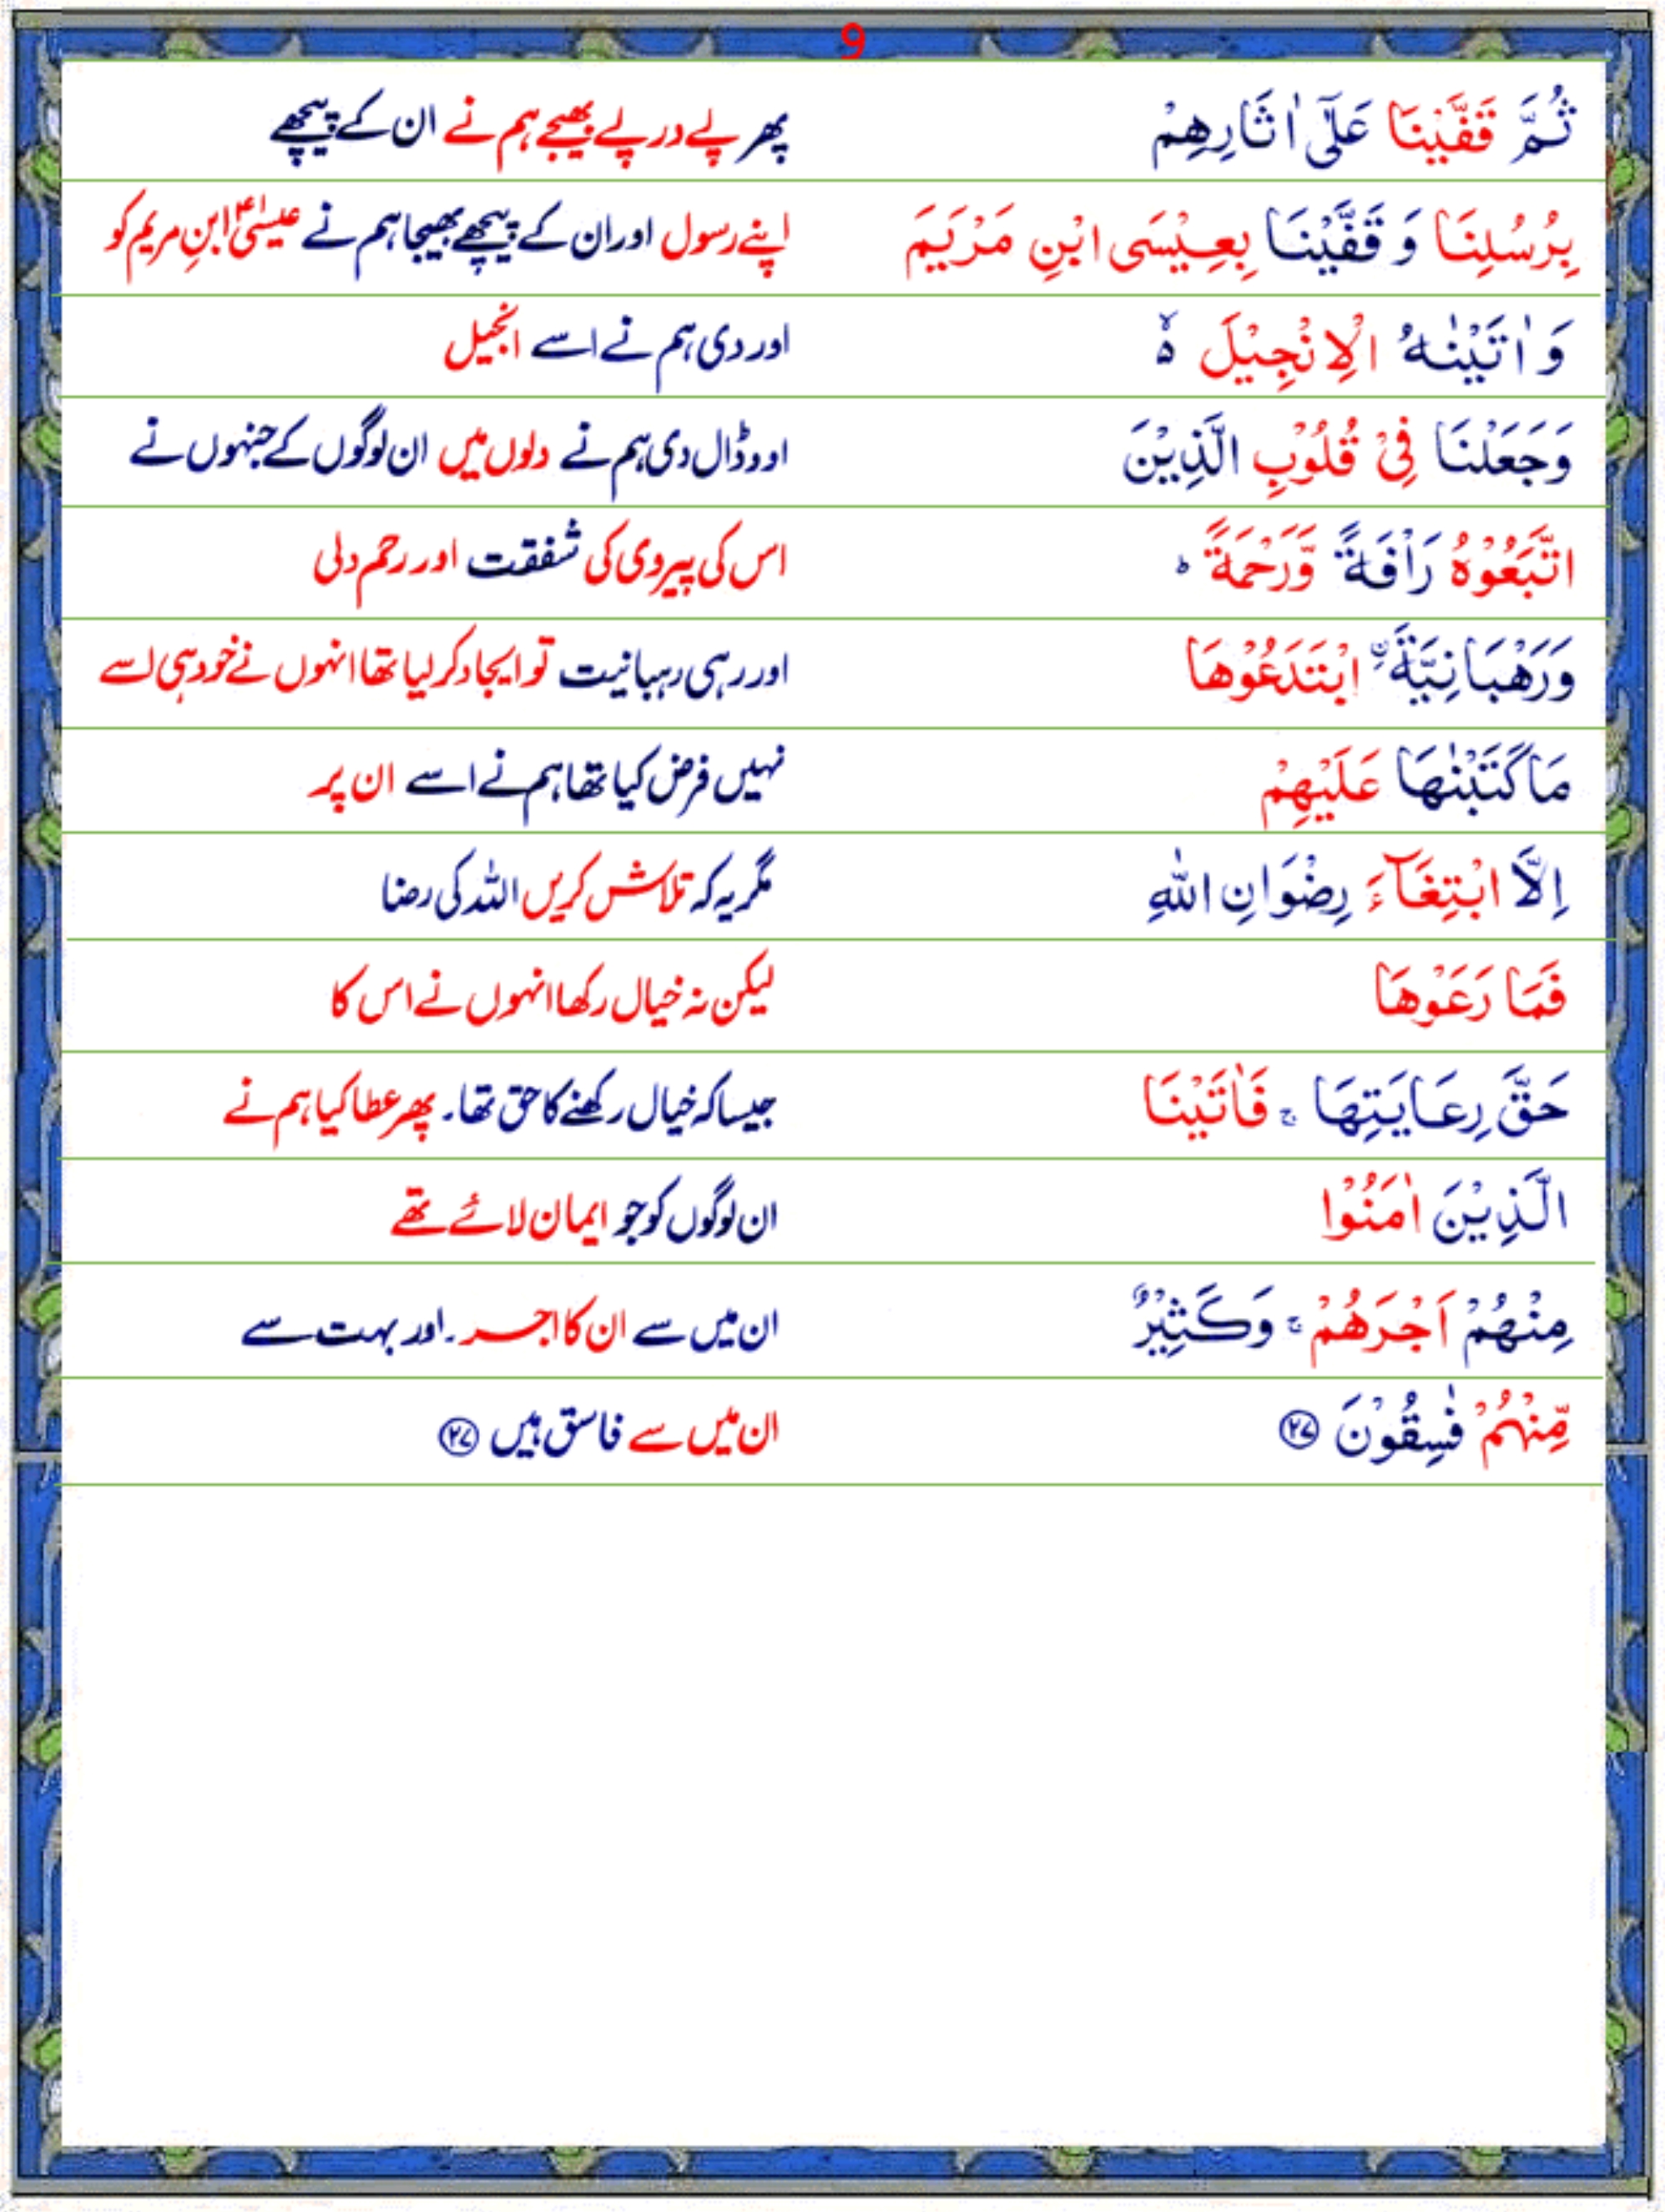 9
ثُمَّ قَفَّيْنَا عَلٰٓى اٰثَارِهِمْ پھر پے در پے بھیجے ہم نے ان کے پیچھے
بِرُسُلِنَا وَ قَفَّيْنَا بِعِيْسَى ابْنِ مَرْيَمَ اپنے رسول اور ان کے پیچھے بھیجا ہم نے عیسٰیؑ ابنِ مریم کو
وَاٰتَيْنٰهُ الْاِنْجِيْلَ ۙ۬ اور دی ہم نے اسے انجیل
وَجَعَلْنَا فِىْ قُلُوْبِ الَّذِيْنَ اور ڈال دی ہم نے دلوں میں ان لوگوں کے جنہوں نے
اتَّبَعُوْهُ رَاْفَةً وَّرَحْمَةً ؕ اس کی پیروی کی شفقت اور رحم دلی
وَرَهْبَانِيَّةَ ۨ ابْتَدَعُوْهَا اور رہی رہبانیت تو ایجاد کر لیا تھا انہوں نے خود ہی اسے
مَا كَتَبْنٰهَا عَلَيْهِمْ نہیں فرض کیا تھا ہم نے اسے ان پر
اِلَّا ابْتِغَآءَ رِضْوَانِ اللّٰهِ مگر یہ کہ تلاش کریں اللہ کی رضا
فَمَا رَعَوْهَا لیکن نہ خیال رکھا انہوں نے اس کا
حَقَّ رِعَايَتِهَا ۚ فَاٰتَيْنَا جیسا کہ خیال رکھنے کا حق تھا۔ پھر عطا کیا ہم نے
الَّذِيْنَ اٰمَنُوْا ان لوگوں کو جو ایمان لائے تھے
مِنْهُمْ اَجْرَهُمْ ۚ وَكَثِيْرٌ ان میں سے ان کا اجر۔ اور بہت سے
مِّنْهُمْ فٰسِقُوْنَ ۲۷ ان میں سے فاسق ہیں ۲۷